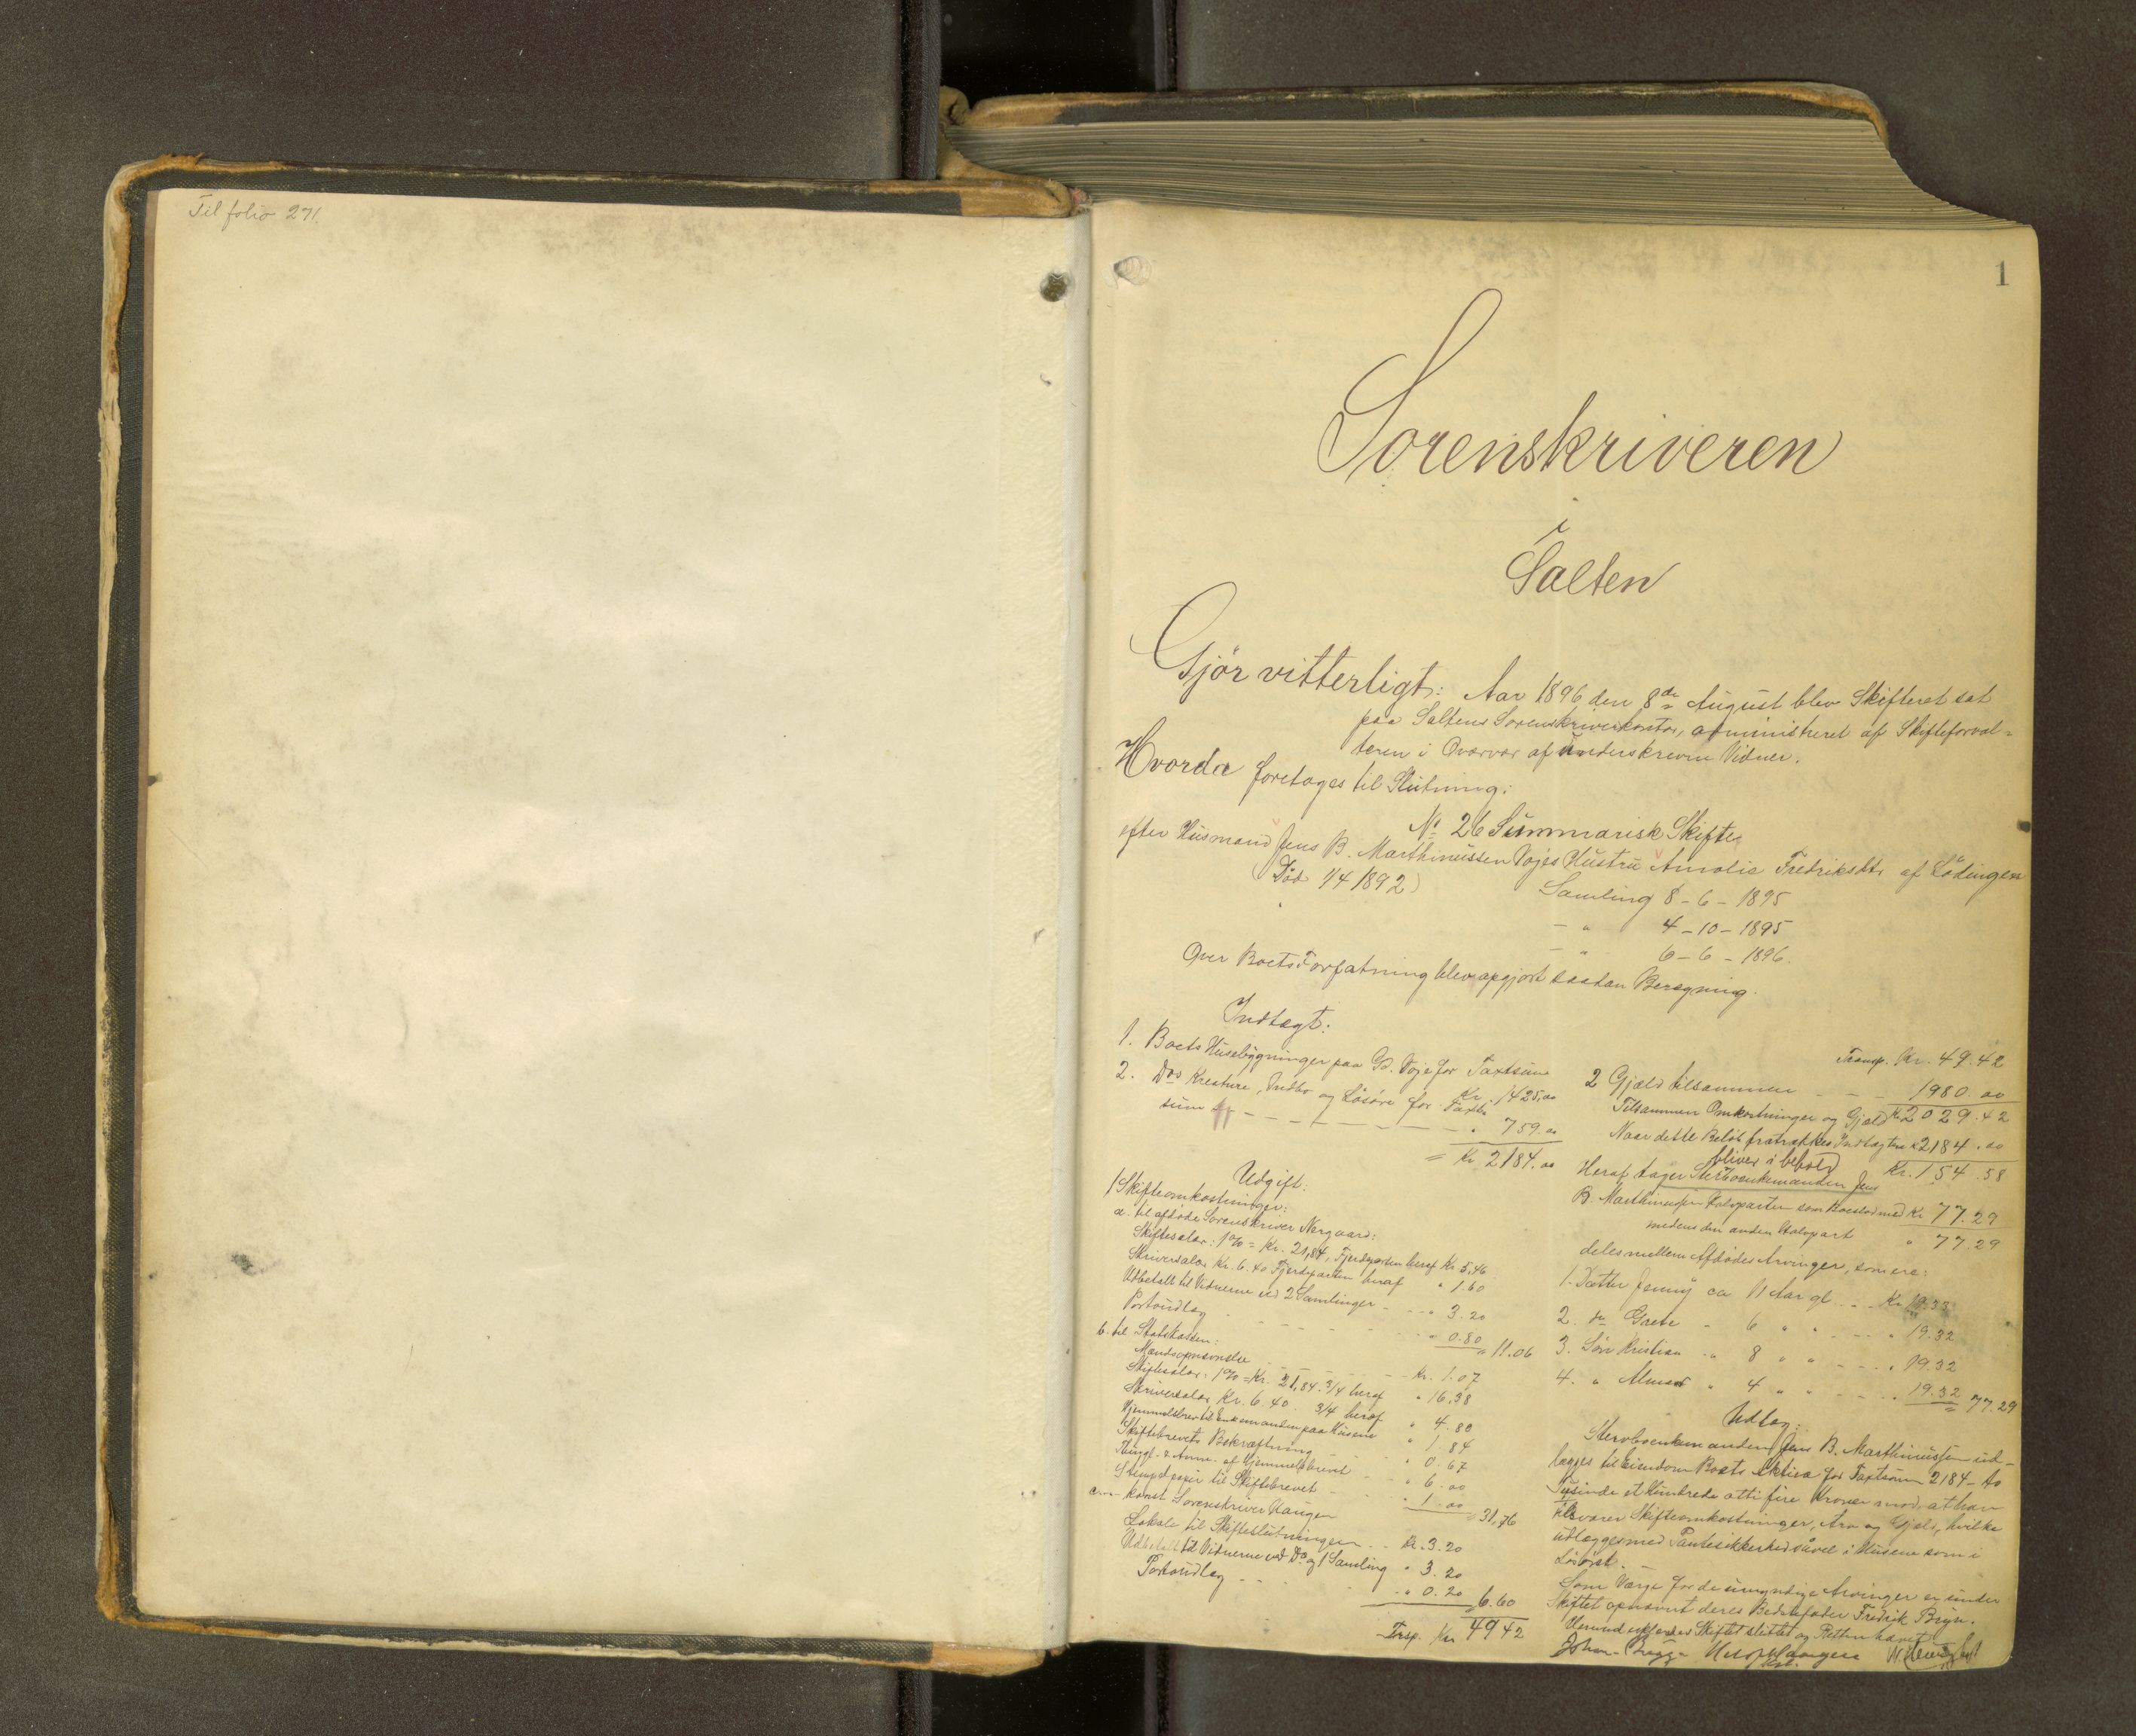 Til folio 271.
1
Sorenskriveren
i
Salten
Gjör vitterligt: Aar 1896 den 8de August blev Skifteret sat
paa Saltens Sorenskriverkontor, administreret af Skifteforval-
teren i Overvær af underskrevne Vidner.
Hvorda foretoges til Slutning:
No 26 Summarisk Skifte
efter Husmand Jens B. Marthinussen Vojes Hustru Amalie Fredriksdtr af Lödingen
(Död 1/4 1892)
Samling 8-6-1895
- " 4-10-1895
- " 6-6-1896.
Over Boets Forfatning blev opgjort saadan Beregning.
Indtægt:
1. Boets Husebygninger paa Gd. Voje for Taxtsum
Kr. 1425,00
2. Dos Kreature, Indbo og Lösöre for Taxt-
sum " 759.00
= Kr 2184.00
Udgift:
1 Skifteomkostninger:
a. til afdöde Sorenskriver Nergaard:
Skiftesalær: 1% = Kr. 21,84, Fjerdeparten heraf Kr 5,46
Skriversalær Kr. 6.40 Fjerdeparten heraf " 1.60
Udbetalt til Vidnerne ved 2 Samlinger - - " 3.20
Portoudlæg - - - - " 0.80 = 11.06
b. til Statskassen:
Kr. 1.07
Skiftesalær: 1% = Kr. 21,84. 3/4 heraf " 16,38
Skriversalær Kr. 6.40. 3/4 heraf " 4.80
Hjemmelsbrev til Enkemanden paa Husene " 1.84
Skiftebrevets Bekræftning - " 0.67
Thingl. & Anm. af Hjemmelsbrevet - - " 6.00
Stempelpapir til Skiftebrevet - - " 1.00 = 31,76
Sorenskriver Haugen
Lokale til Skifteslutningen - - Kr. 3.20
Udbetalt til Vidnerne ved Do og 1 Samling " 3.20
Portoudlæg - - - " 0.20 6.60
Trsp. Kr 49 42
Transp. Kr. 49.42
2 Gjæld tilsammen - - - 1980.00
Tilsammen Omkostninger og Gjæld Kr 2029.42
Naar dette Belöb fratrækkes Indtægten K 2184.00
bliver i behold Kr. 154.58
Heraf tager Stervboenkemanden Jens
B. Marthinussen Halvparten som Boeslod med Kr 77.29
medens den anden Halvpart " 77.29
deles mellem Afdödes Arvinger, som ere:
1. Datter Jenny ca 11 Aar gl. - Kr 19.33
2. do Grete " 6 " " - - - " 19.32
3. Sön Kristian " 8 " " - - - " 19.32
4. " Almar " 4 " " - - - " 19.32 = 77.29
Udlæg:
Stervboenkemanden Jens B. Marthinussen ud-
lægges til Eiendom Boets Aktiva for Taxtsum 2184 - to
Tusinde et Hundrede otti fire Kroner mod, at han
tilsvarer Skifteomkostninger, Arv og Gjæld, hvilke
udlægges med Pantesikkerhed såvel i Husene som i
Lösöret.
Som Værge for de umyndige Arvinger er under
Skiftet opnævnt deres Bedstefader Fredrik
Hermed erklæres Skiftet sluttet og Retten hævet.
Johan Brygge Haugen